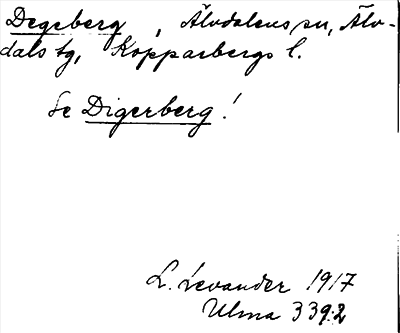 Degeberg, Älvdalens sn, Älv-
dals tg, Kopparbergs l.
Se Digerberg!
L. Levander 1917
Ulma 339:2